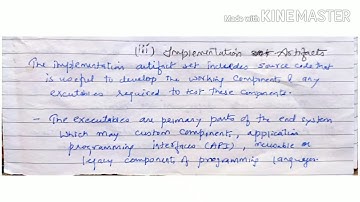 Made with KINEMASTER
(iii) Implementation Artifacts
The implementation artifact set includes source code that
is useful to develop the working components & any
excutables required to test these components.
- The executables are primary parts of the end system
which may custom components, application
programming interfaces (API), reusable or
legacy component of programming languages.